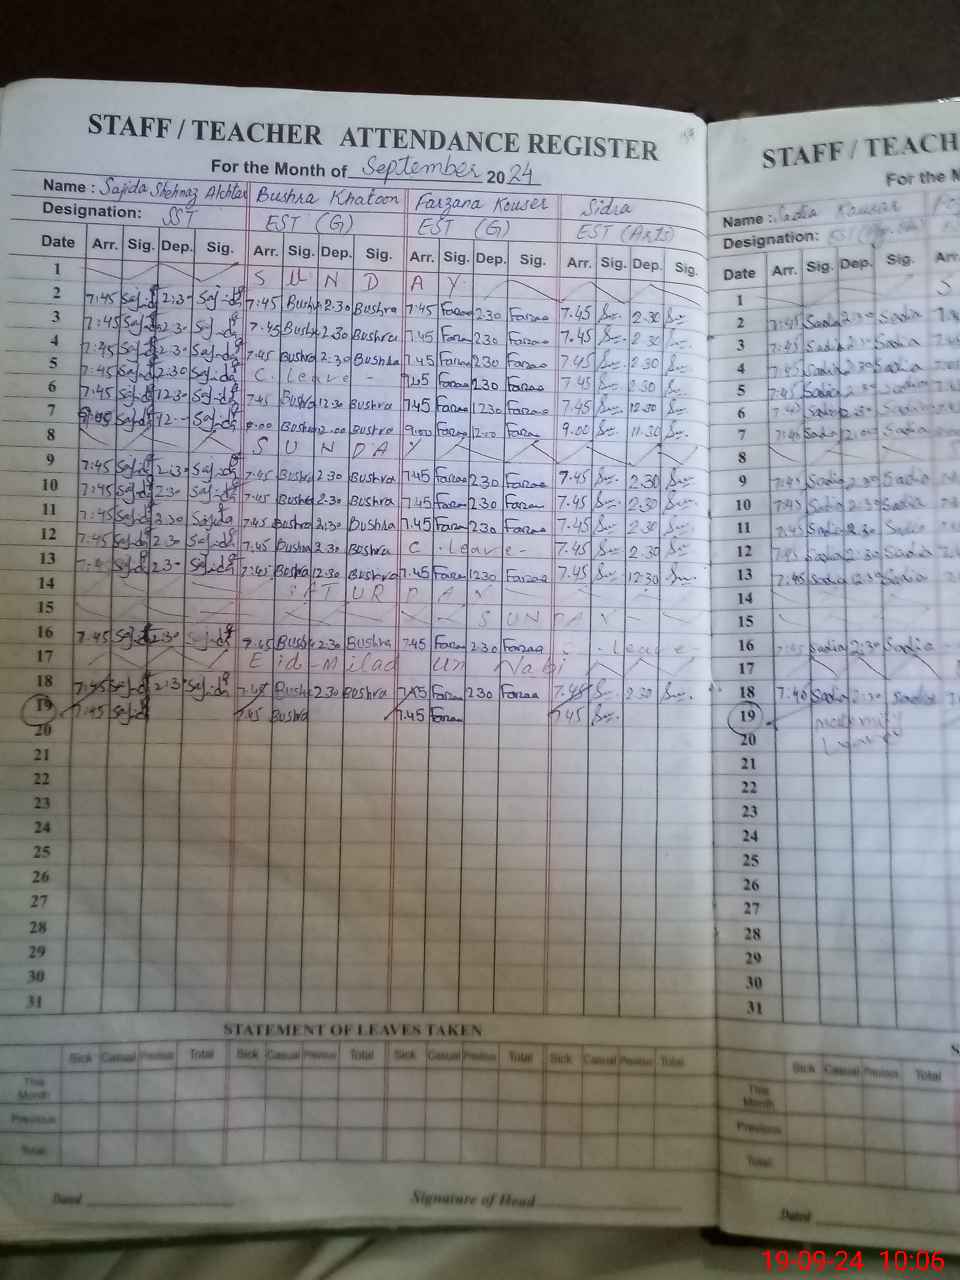 STAFF / TEACHER ATTENDANCE REGISTER
For the Month of September 2024
Name : Sajida Shehnaz Akhtar Bushra Khatoon Farzana Kouser Sidra
Designation: SST EST (G) EST (G) EST (Arts)
Date Arr. Sig. Dep. Sig. Arr. Sig. Dep. Sig. Arr. Sig. Dep. Sig. Arr. Sig. Dep. Sig.
1 S U N D A Y
2 7:45 Sajida 2:30 Sajida 7:45 Bushra 2:30 Bushra 7:45 Farzana 2:30 Farzana 7.45 2.30
3 7:45 Sajida 2:30 Sajida 7.45 Bushra 2:30 Bushra 7.45 Farzana 2:30 Farzana 7.45 2.30
4 7:45 Sajida 2:30 Sajida 7:45 Bushra 2:30 Bushra 7.45 Farzana 2:30 Farzana 7.45 2.30
5 7:45 Sajida 2:30 Sajida C. leave - 7:45 Farzana 2:30 Farzana 7.45 2.30
6 7:45 Sajida 12.30 Sajida 7:45 Bushra 12:30 Bushra 7.45 Farzana 1230 Farzana 7.45 12.30
7 Sajida Sajida Bushra 12.00 Bushra 9:00 Farzana 12:00 Farzana 9.00 11.30
8 S U N D A Y
9 7:45 Sajida 2:30 Sajida 7.45 Bushra 2:30 Bushra 7.45 Farzana 2:30 Farzana 7.45 2.30
10 7:45 Sajida 2:30 Sajida 7.45 Bushra 2:30 Bushra 7.45 Farzana 2:30 Farzana 7.45 2.30
11 7:45 Sajida 2:30 Sajida 7:45 Bushra 2:30 Bushra 7.45 Farzana 2:30 Farzana 7.45 2.30
12 7:45 Sajida 2:30 Sajida 7.45 Bushra 2:30 Bushra C. leave - 7.45 2.30
13 Sajida Sajida 7:45 Bushra 12:30 Bushra 7.45 Farzana 1230 Farzana 7.45 12.30
14 SATURDAY
15 SUNDAY
16 7:45 Sajida 2:30 Sajida 7.45 Bushra 2:30 Bushra 7.45 Farzana 2:30 Farzana leave -
17 Eid-Milad un Nabi
18 7:45 Sajida 2:30 Sajida 7.45 Bushra 2:30 Bushra 7.45 Farzana 2:30 Farzana 7.45 2.30
19 7:45 Sajida 7.45 Bushra 7.45 Farzana 7.45
20
21
22
23
24
25
26
27
28
29
30
31
STATEMENT OF LEAVES TAKEN
Sick Casual Previous Total Sick Casual Previous Total Sick Casual Previous Total Sick Casual Previous Total
This Month
Previous
Total
Dated Signature of Head
STAFF / TEACH
For the M
Name : Sadia Kousar
Designation:
Date Arr. Sig. Dep. Sig. Arr.
1 S
2 7:45 Sadia 2:30 Sadia
3 7:45 Sadia 2:30 Sadia
4 7:45 Sadia 2:30 Sadia
5 7:45 Sadia 2:30 Sadia
6 7:45 Sadia Sadia
7 7:45 Sadia Sadia
8
9 7:45 Sadia 2:30 Sadia
10 7:45 Sadia 2:30 Sadia
11 7:45 Sadia 2:30 Sadia
12 7:45 Sadia 2:30 Sadia
13 7:45 Sadia Sadia
14
15
16 7:45 Sadia 2:30 Sadia
17
18 Sadia 2:30 Sadia
19 maternity
20 leave
21
22
23
24
25
26
27
28
29
30
31
Sick Casual Previous Total
This Month
Previous
Total
Dated
19-09-24 10:06